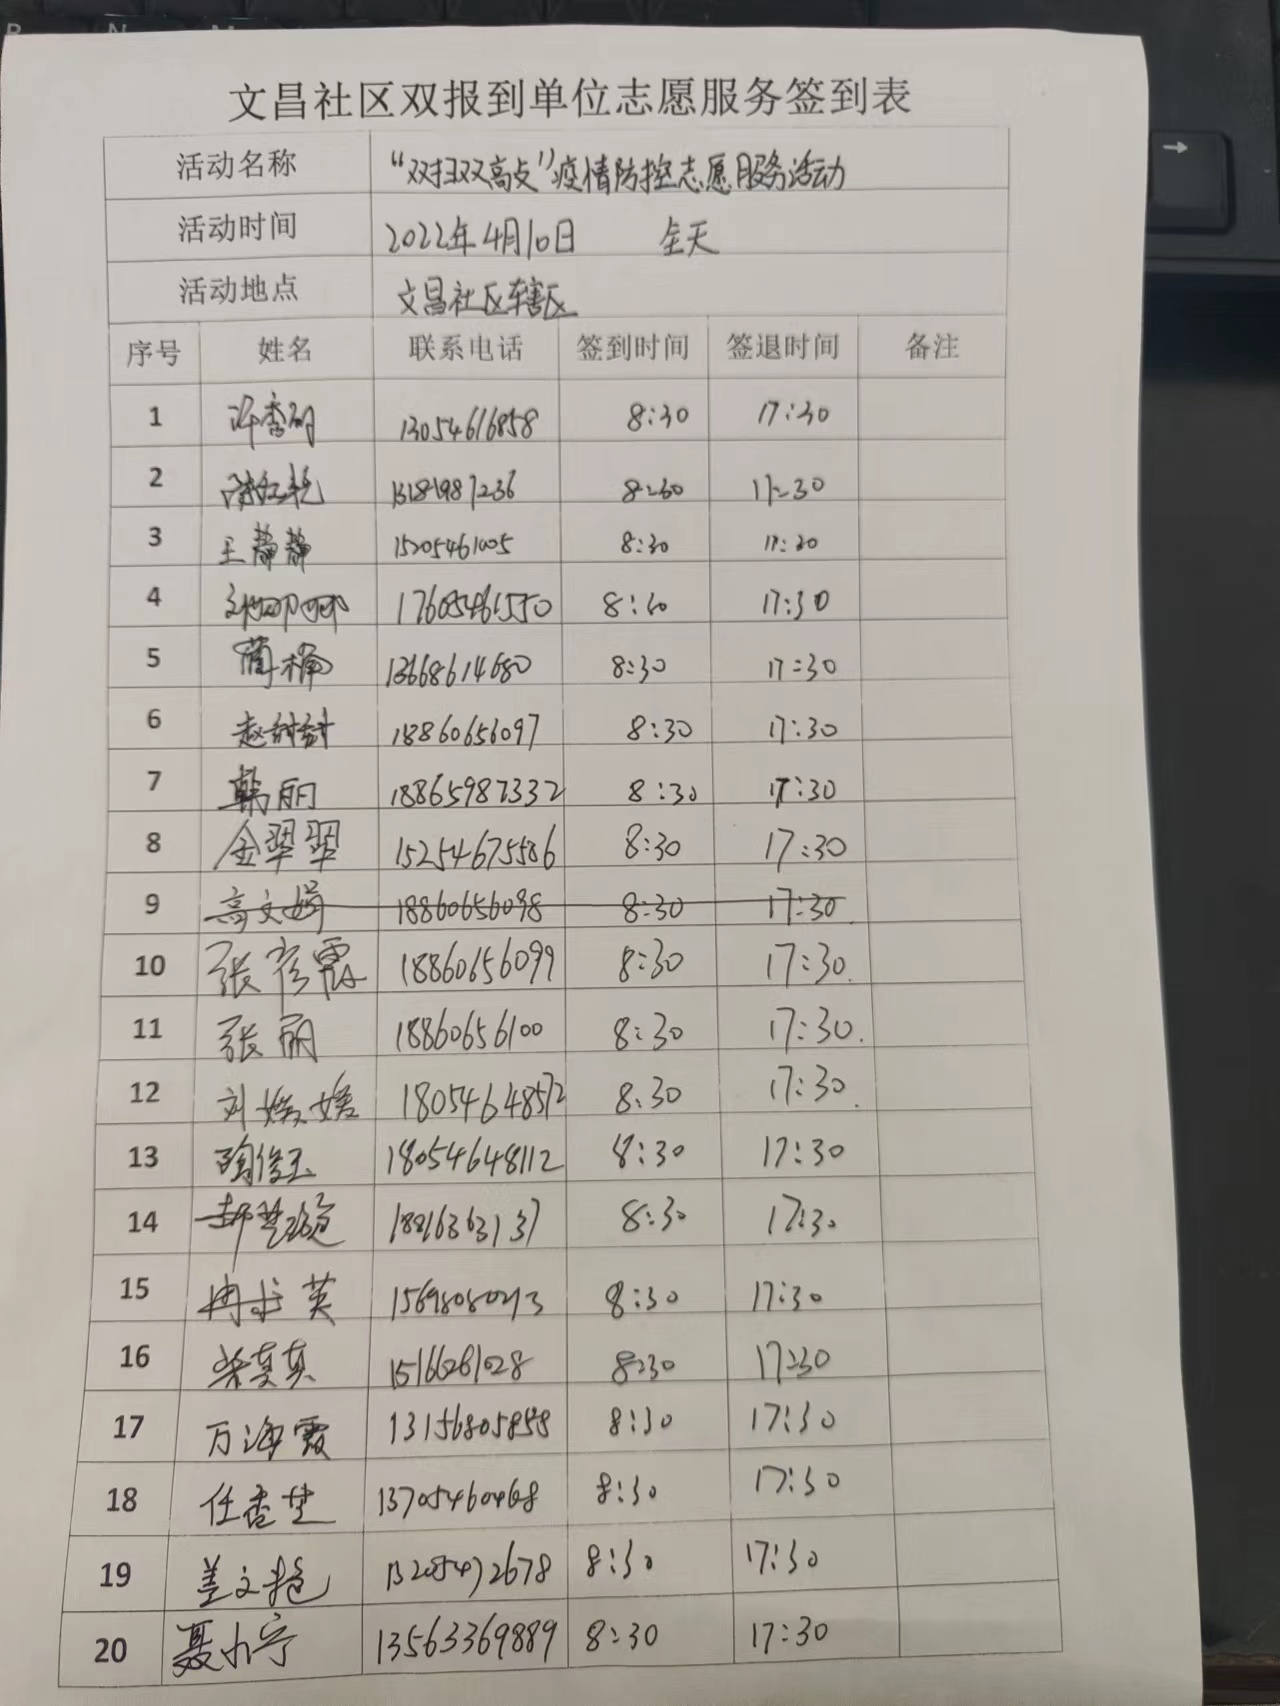 文昌社区双报到单位志愿服务签到表
活动名称 “双扫双高点”疫情防控志愿服务活动
活动时间 2022年4月10日 全天
活动地点 文昌社区辖区
序号 姓名 联系电话 签到时间 签退时间 备注
1 许香丽 13054616858 8:30 17:30
2 陈红艳 8:30 17:30
3 王静静 15205461005 8:30 17:30
4 刘娜娜 17605461550 8:30 17:30
5 蔺楠 13668614680 8:30 17:30
6 赵甜甜 18860656097 8:30 17:30
7 韩丽 18865987332 8:30 17:30
8 金翠翠 15254675586 8:30 17:30
9 高文娟 18860656098 8:30 17:30
10 张彦霞 18860656099 8:30 17:30
11 张丽 18860656100 8:30 17:30
12 刘媛媛 18054648572 8:30 17:30
13 陶俊玉 18054648112 8:30 17:30
14 8:30 17:30
15 冉求英 8:30 17:30
16 柴真真 8:30 17:30
17 万海霞 13156805858 8:30 17:30
18 任香芝 13705460468 8:30 17:30
19 姜文艳 13205472678 8:30 17:30
20 聂小宁 13563369889 8:30 17:30